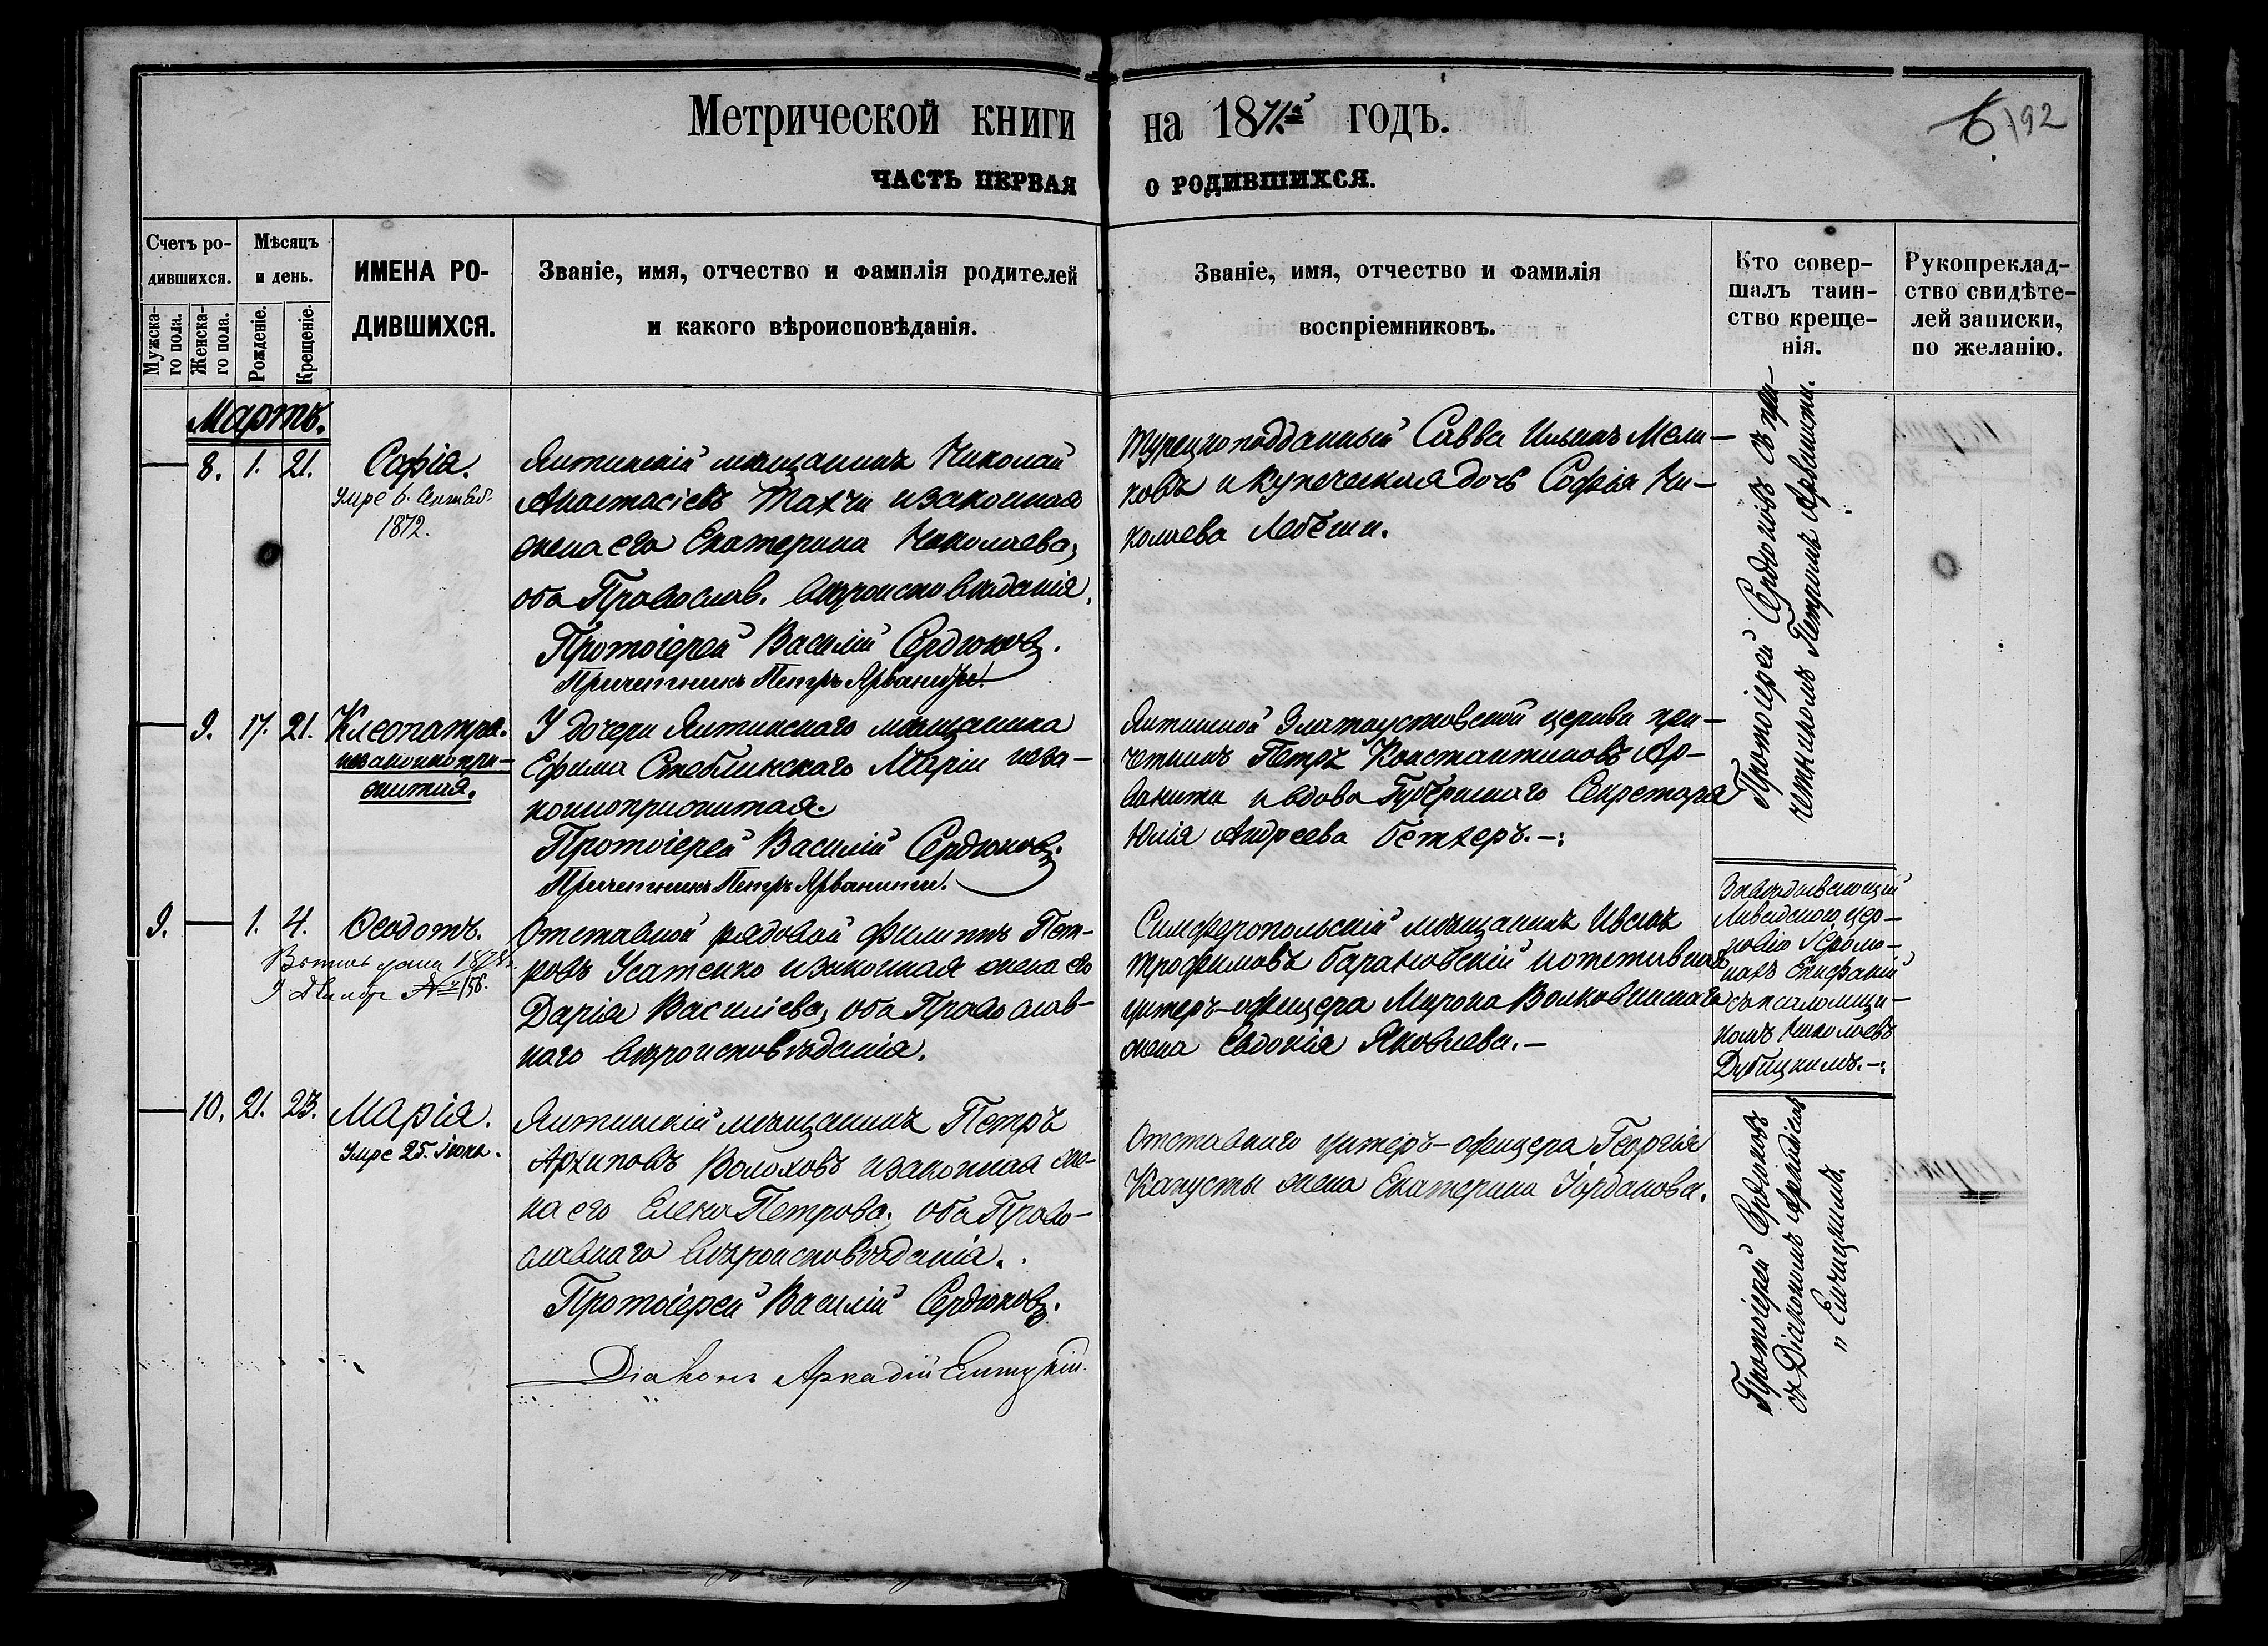 Метрической книги на 1871й годъ.
6
192
ЧАСТЬ ПЕРВАЯ О РОДИВШИХСЯ.
Счетъ ро-
дившихся.
Мужска-
го пола.
Женска-
го пола.
Мѣсяцъ
и день.
Рожденіе.
Крещеніе.
ИМЕНА РО-
ДИВШИХСЯ.
Званіе, имя, отчество и фамилія родителей
и какого вѣроисповѣданія.
Званіе, имя, отчество и фамилія
воспріемниковъ.
Кто совер-
шалъ таин-
ство креще-
нія.
Рукоприклад-
ство свидѣте-
лей записки,
по желанію.
Мартъ.
— 8. 1. 21.
Софія.
Умре 6. Октяб.
1872.
Ялтинскій мѣщанинъ Николай
Анастасіевъ Тахчи и законная
жена его Екатерина Николаева,
оба Православ. вѣроисповѣданія.
Протоіерей Василій Сердюковъ.
Причетникъ Петръ Арваниди.
Турецкоподданный Савва Ильинъ Мели-
ковъ и купеческая дочь Софія Ни-
колаева Лебеши.
Протоіерей Сердюковъ съ при-
четникомъ Петромъ Арванити.
— 9. 17. 21.
Клеопатра.
незаконнопри-
житая.
У дочери Ялтинскаго мѣщанина
Ефима Стеблинскаго Маріи неза-
конноприжитая.
Протоіерей Василій Сердюковъ.
Причетникъ Петръ Арванити.
Ялтинской Златоустовской церкви при-
четникъ Петръ Константиновъ Ар-
ванити и вдова Губернскаго Секретаря
Юлія Андреева Бетхеръ.–:
9. — 1. 4.
Ѳеодотъ.
1878
9 №156.
Отставной рядовой Филиппъ Пет-
ровъ Усатенко и законная жена его
Дарія Васильева, оба Православ-
наго вѣроисповѣданія.
Симферопольскій мѣщанинъ Ивсюкъ
Трофимовъ Барановскій и отставнаго
унтеръ-офицера Мирона Волковинскаго
жена Евдокія Яковлева.–
Завѣдывающій
Ливадскою цер-
ковію Іеромо-
нахъ Епифаній
съ псаломщи-
комъ Николаевъ
Дубицкимъ.–:
— 10. 21. 23.
Марія.
Умре 25. Іюня.
Ялтинскій мѣщанинъ Петръ
Архиповъ Волоховъ и законная же-
на его Елена Петрова, оба Право-
славнаго вѣроисповѣданія.
Протоіерей Василій Сердюковъ.
Діаконъ Аркадій
Отставнаго унтеръ-офицера Георгія
Капусты жена Екатерина Іорданова.
Протоіерей Сердюковъ
съ Діакономъ Аркадіемъ